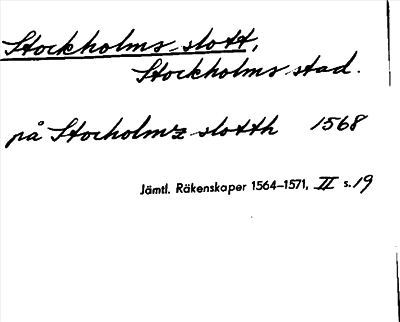 Stockholms slott,
Stockholms stad.
på Stocholmz slotth 1568
Jämtl. Räkenskaper 1564–1571, II s. 19